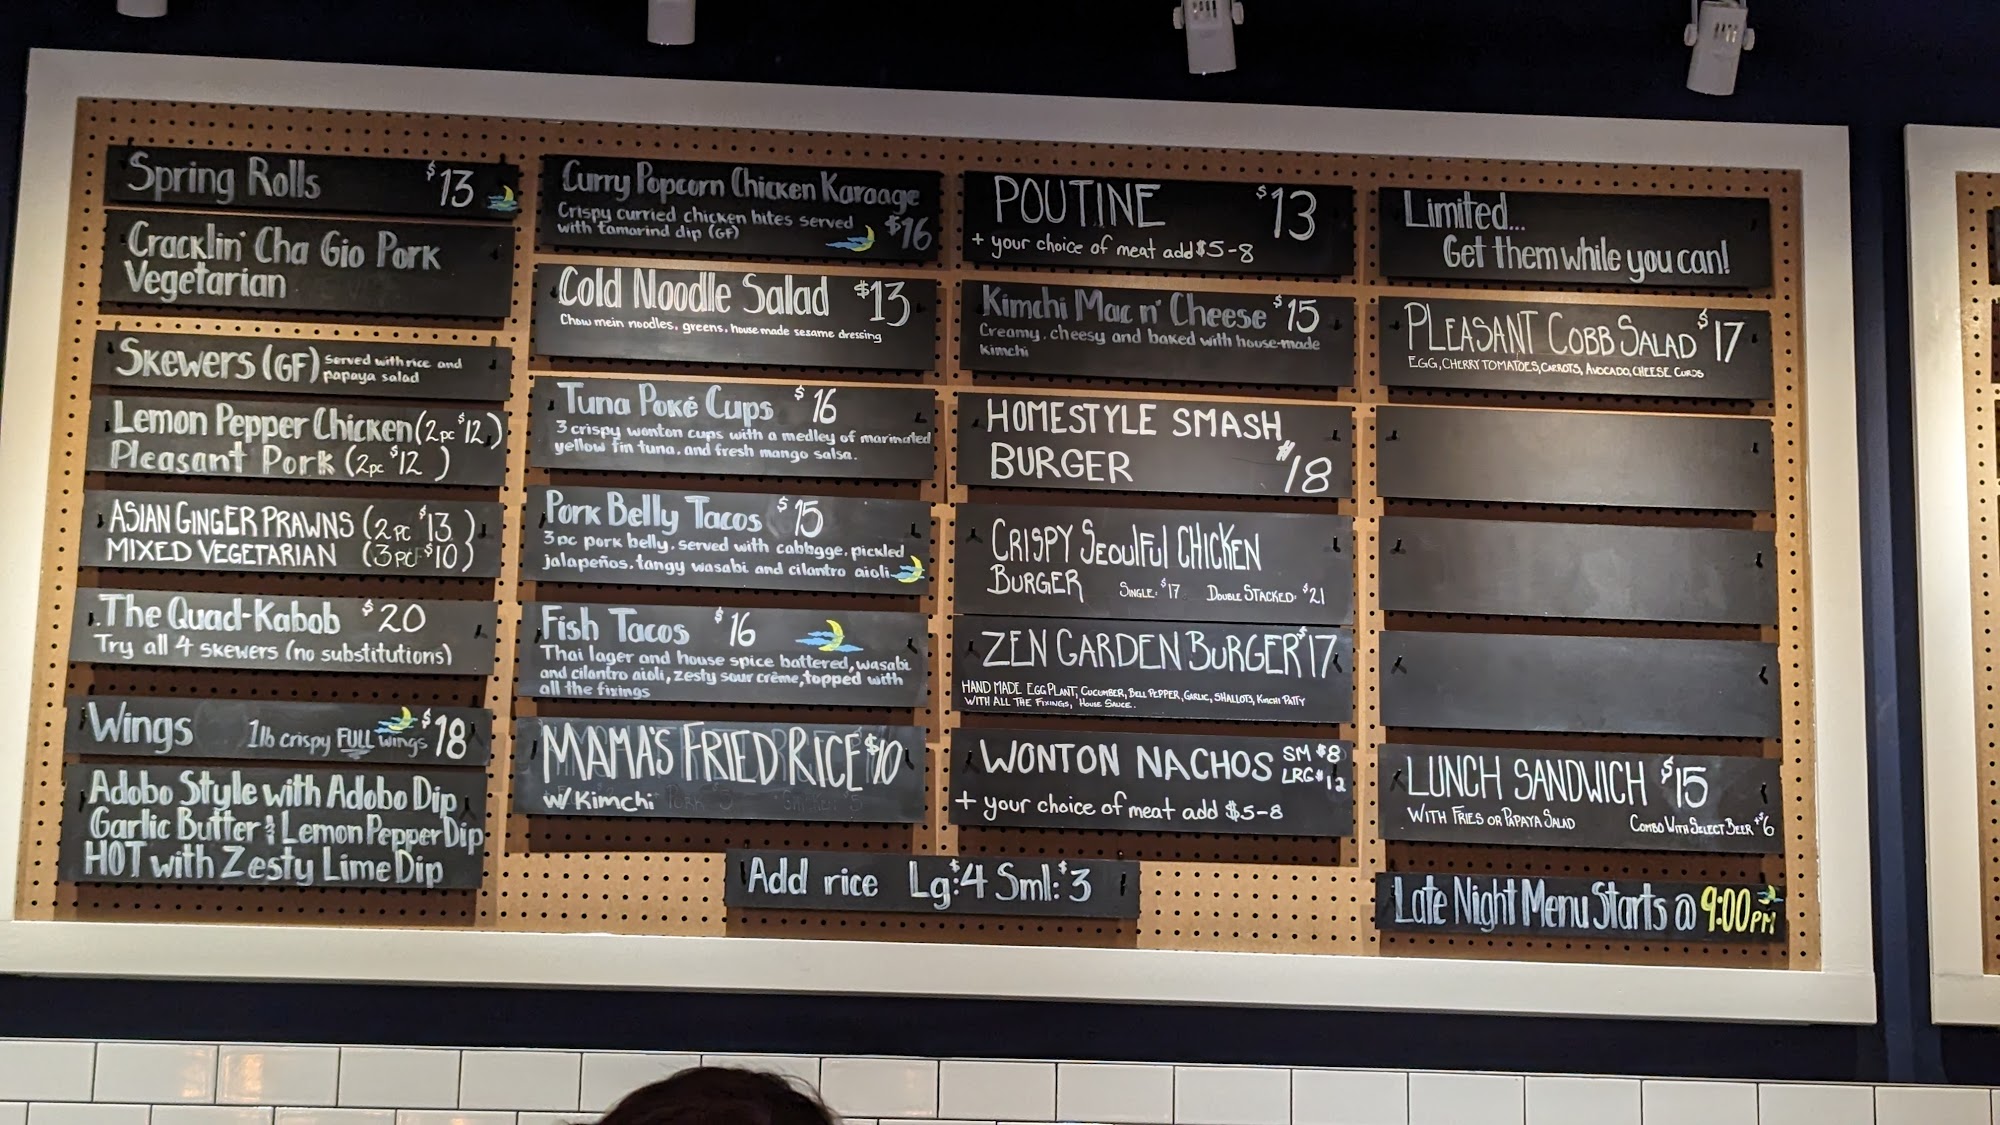 Spring Rolls $13
Cracklin' Cha Gio Pork
Vegetarian
Skewers (GF) Served with rice and
papaya salad
Lemon Pepper Chicken (2pc $12)
Pleasant Pork (2pc $12)
ASIAN GINGER PRAWNS (2PC $13)
MIXED VEGETARIAN (3PC $10)
The Quad-Kabob $20
Try all 4 skewers (no substitutions)
Wings 1lb crispy FULL wings $18
Adobo Style with Adobo Dip
Garlic Butter & Lemon Pepper Dip
HOT with Zesty Lime Dip
Curry Popcorn Chicken Karaage
Crispy curried chicken bites served
with tamarind dip (GF) $16
Cold Noodle Salad $13
Chow mein noodles, greens, house made sesame dressing
Tuna Poké Cups $16
3 crispy wonton cups with a medley of marinated
yellow fin tuna, and fresh mango salsa.
Pork Belly Tacos $15
3pc pork belly, served with cabbgge, pickled
jalapeños, tangy wasabi and cilantro aioli
Fish Tacos $16
Thai lager and house spice battered, wasabi
and cilantro aioli, zesty sour crème, topped with
all the fixings
MAMA'S FRIED RICE $10
w/ Kimchi
POUTINE $13
+ your choice of meat add $5-8
Kimchi Mac n' Cheese $15
Creamy, cheesy and baked with house-made
kimchi
HOMESTYLE SMASH
BURGER $18
CRISPY SEOULFUL CHICKEN
BURGER SINGLE: $17 DOUBLE STACKED: $21
ZEN GARDEN BURGER $17
HAND MADE EGGPLANT, CUCUMBER, BELL PEPPER, GARLIC, SHALLOTS, KIMCHI PATTY
WITH ALL THE FIXINGS, HOUSE SAUCE.
WONTON NACHOS SM $8
LRG $12
+ your choice of meat add $5-8
Add rice Lg: $4 Sml: $3
Limited...
Get them while you can!
PLEASANT COBB SALAD $17
EGG, CHERRY TOMATOES, CARROTS, AVOCADO, CHEESE CURDS
LUNCH SANDWICH $15
WITH FRIES OR PAPAYA SALAD COMBO WITH SELECT BEER +$6
Late Night Menu Starts @ 9:00PM